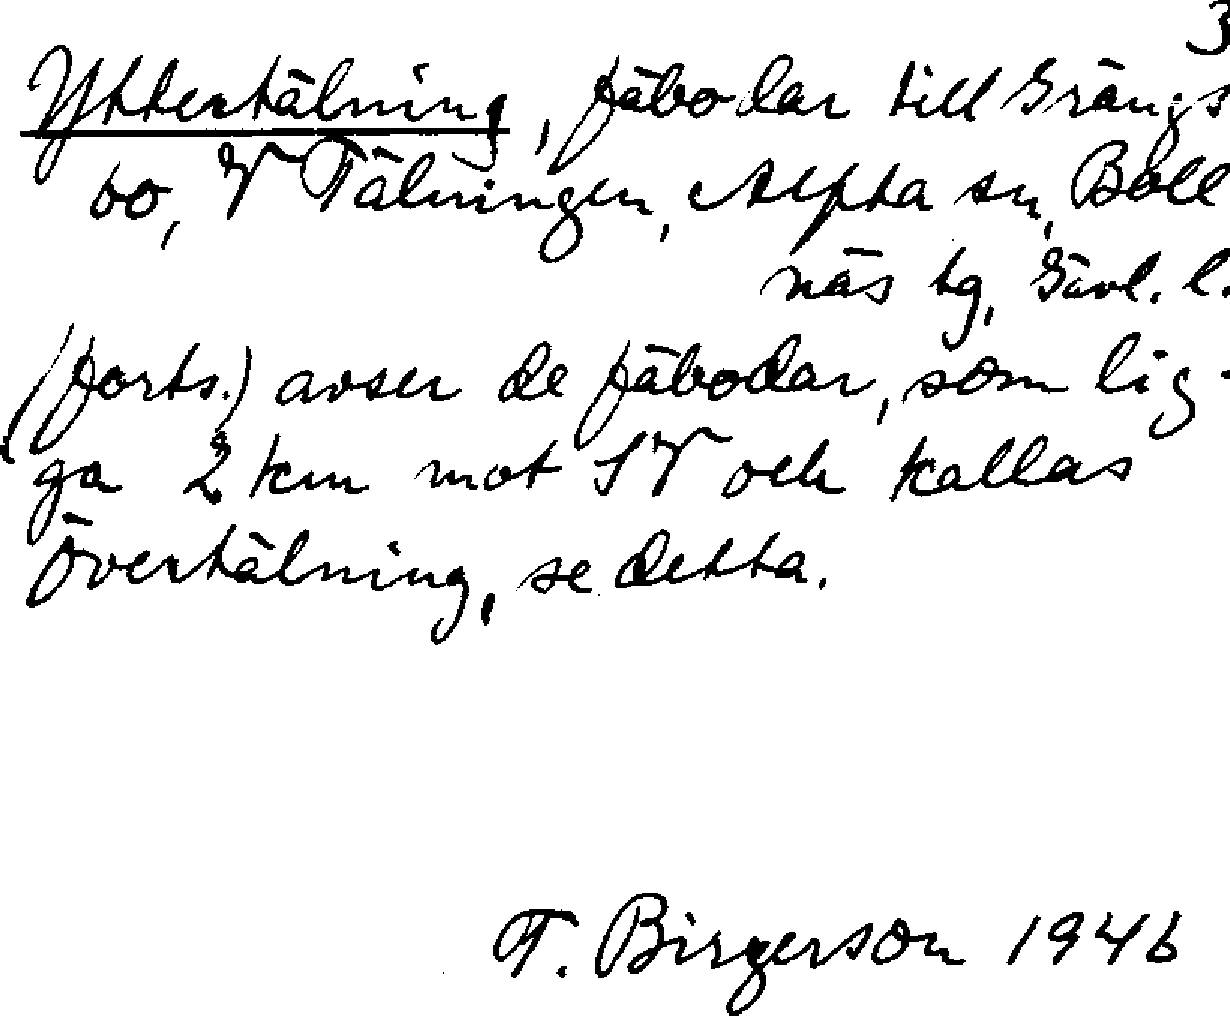 3
Yttertälning, fäbodar till Grängs
bo, V Tälningen, Alfta sn, Boll
näs tg, Gävl. l.
(forts.) avser de fäbodar, som lig-
ga 2 km mot SV och kallas
Övertälning, se detta.
T. Birgerson 1946